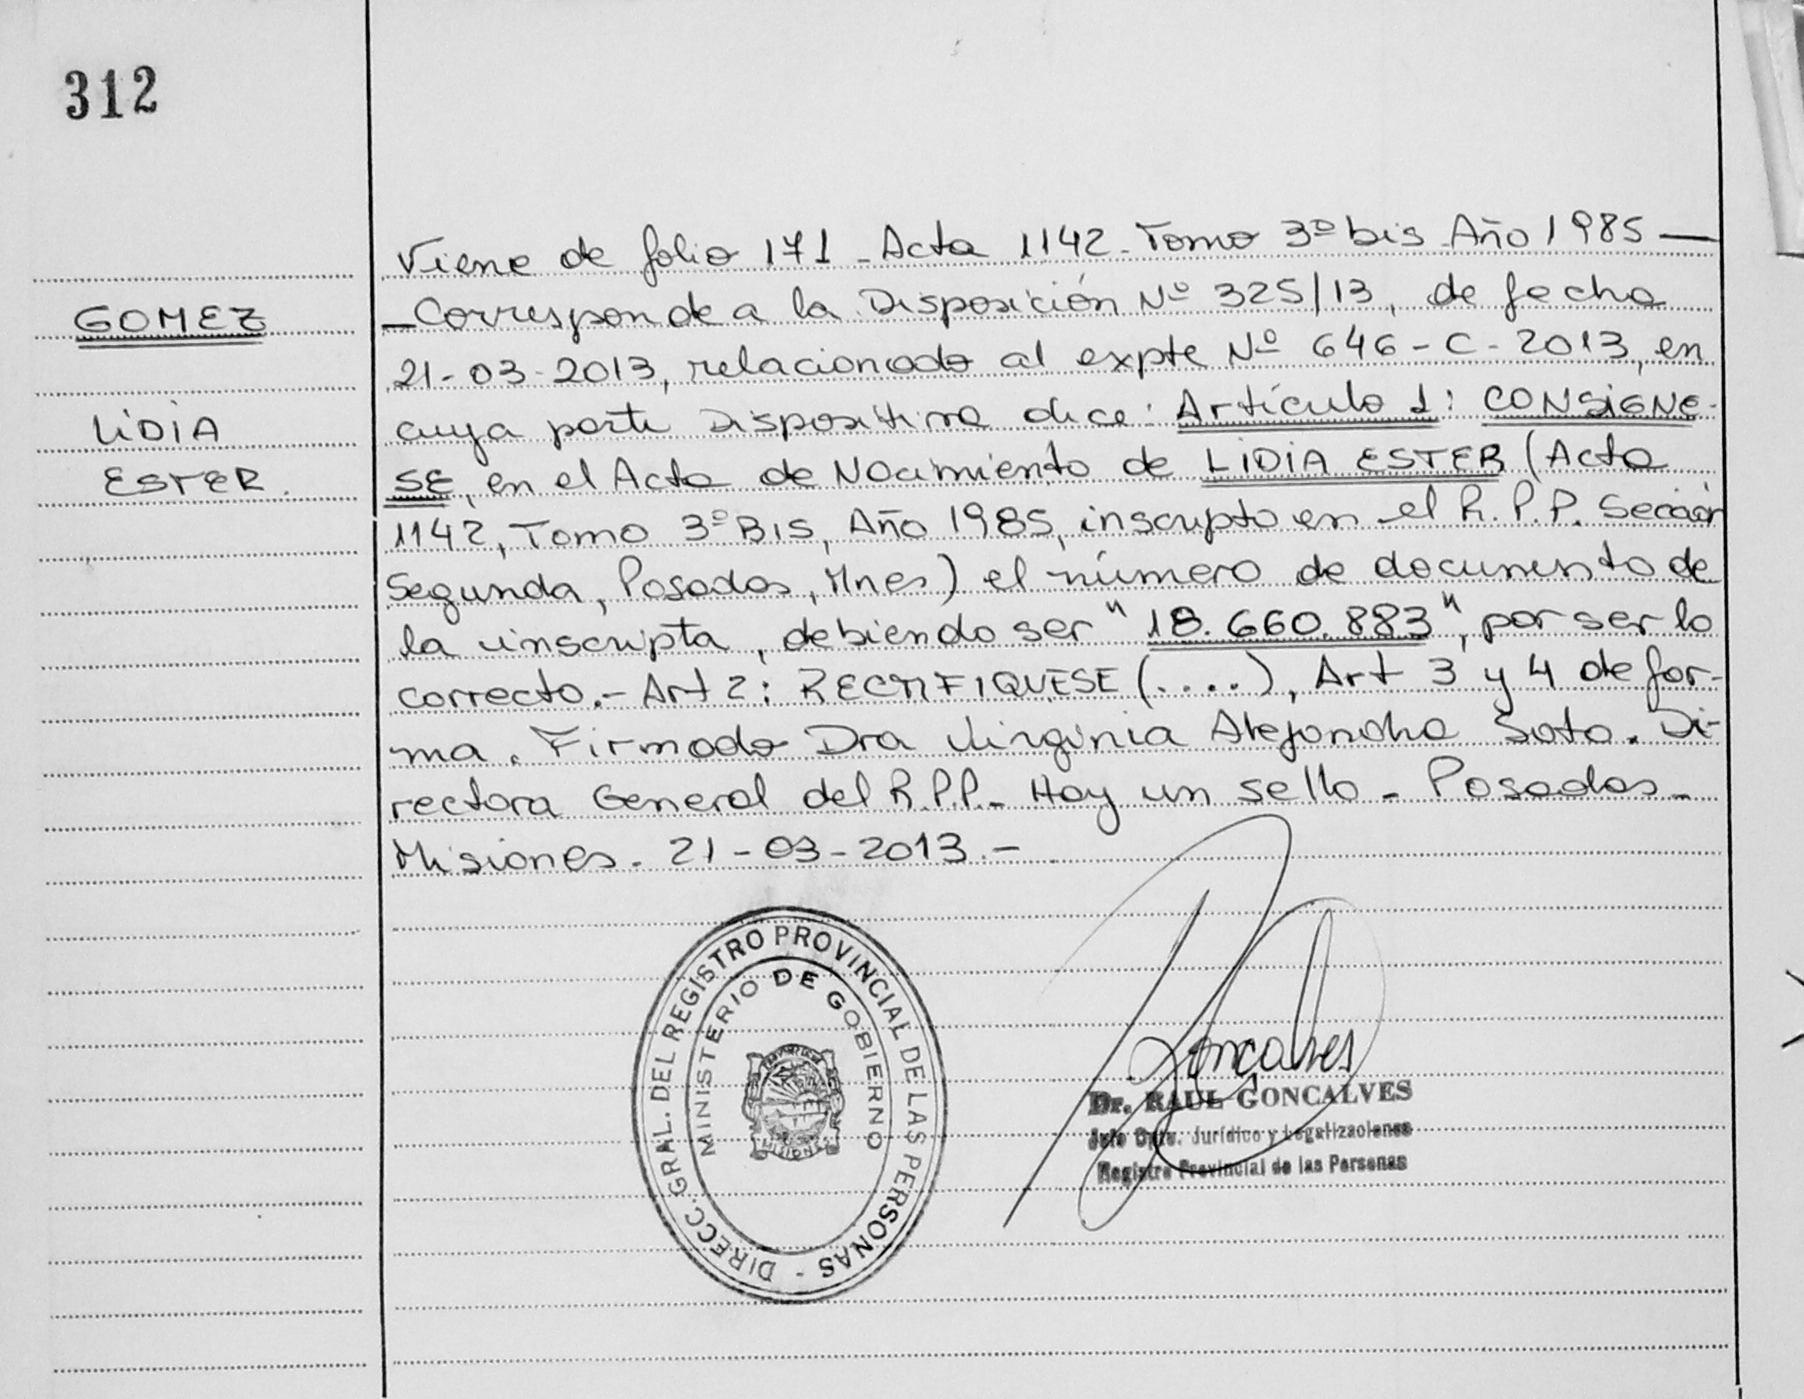 312
GOMEZ
LIDIA
ESTER.
Viene de folio 171 - Acta 1142 - Tomo 3º bis - Año 1985 —
— Corresponde a la Disposición Nº 325/13, de fecha
21-03-2013, relacionado al expte Nº 646-C-2013, en
cuya parte Dispositiva dice: Artículo 1: CONSIGNE-
SE, en el Acta de Nacimiento de LIDIA ESTER (Acta
1142, Tomo 3º Bis, Año 1985, inscripto en el R.P.P. Sección
Segunda, Posadas, Mnes) el número de documento de
la inscripta, debiendo ser "18.660.883", por ser lo
correcto.- Art 2: RECTIFIQUESE (....), Art 3 y 4 de for-
ma. Firmado Dra Virginia Alejandra Soto. Di-
rectora General del R.P.P.- Hay un sello - Posadas -
Misiones. 21-03-2013.-
DIRECC. GRAL. DEL REGISTRO PROVINCIAL DE LAS PERSONAS -
MINISTERIO DE GOBIERNO
MISIONES
Goncalves
Dr. RAUL GONCALVES
Jefe Dpto. Jurídico y Legalizaciones
Registro Provincial de las Personas